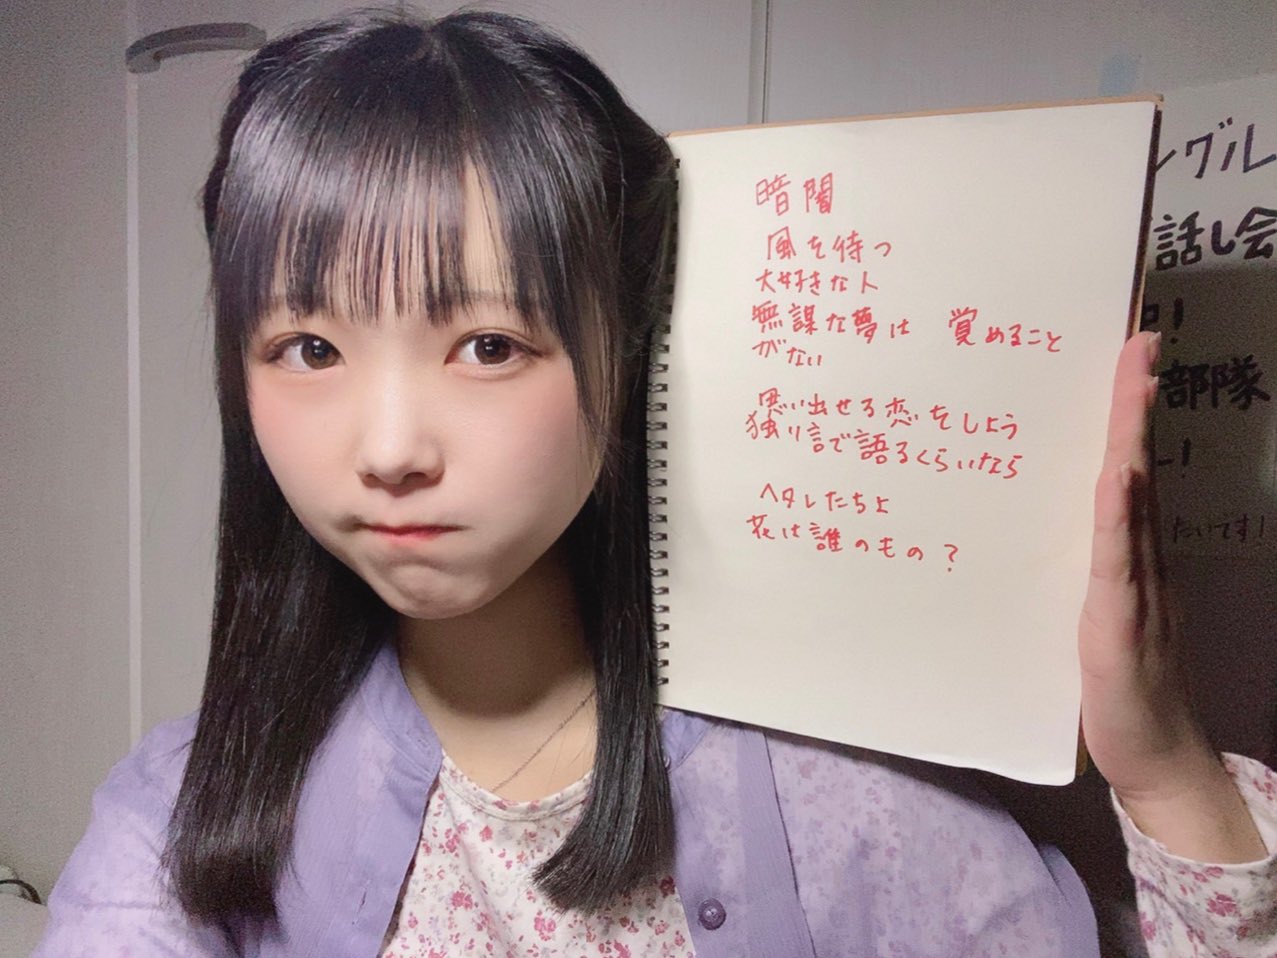 暗闇
風を待つ
大好きな人
無謀な夢は 覚めること
がない
思い出せる恋をしよう
独り言で語るくらいなら
ヘタレたちよ
花は誰のもの?
ングル
話し会
!
部隊
ー!
たいです!